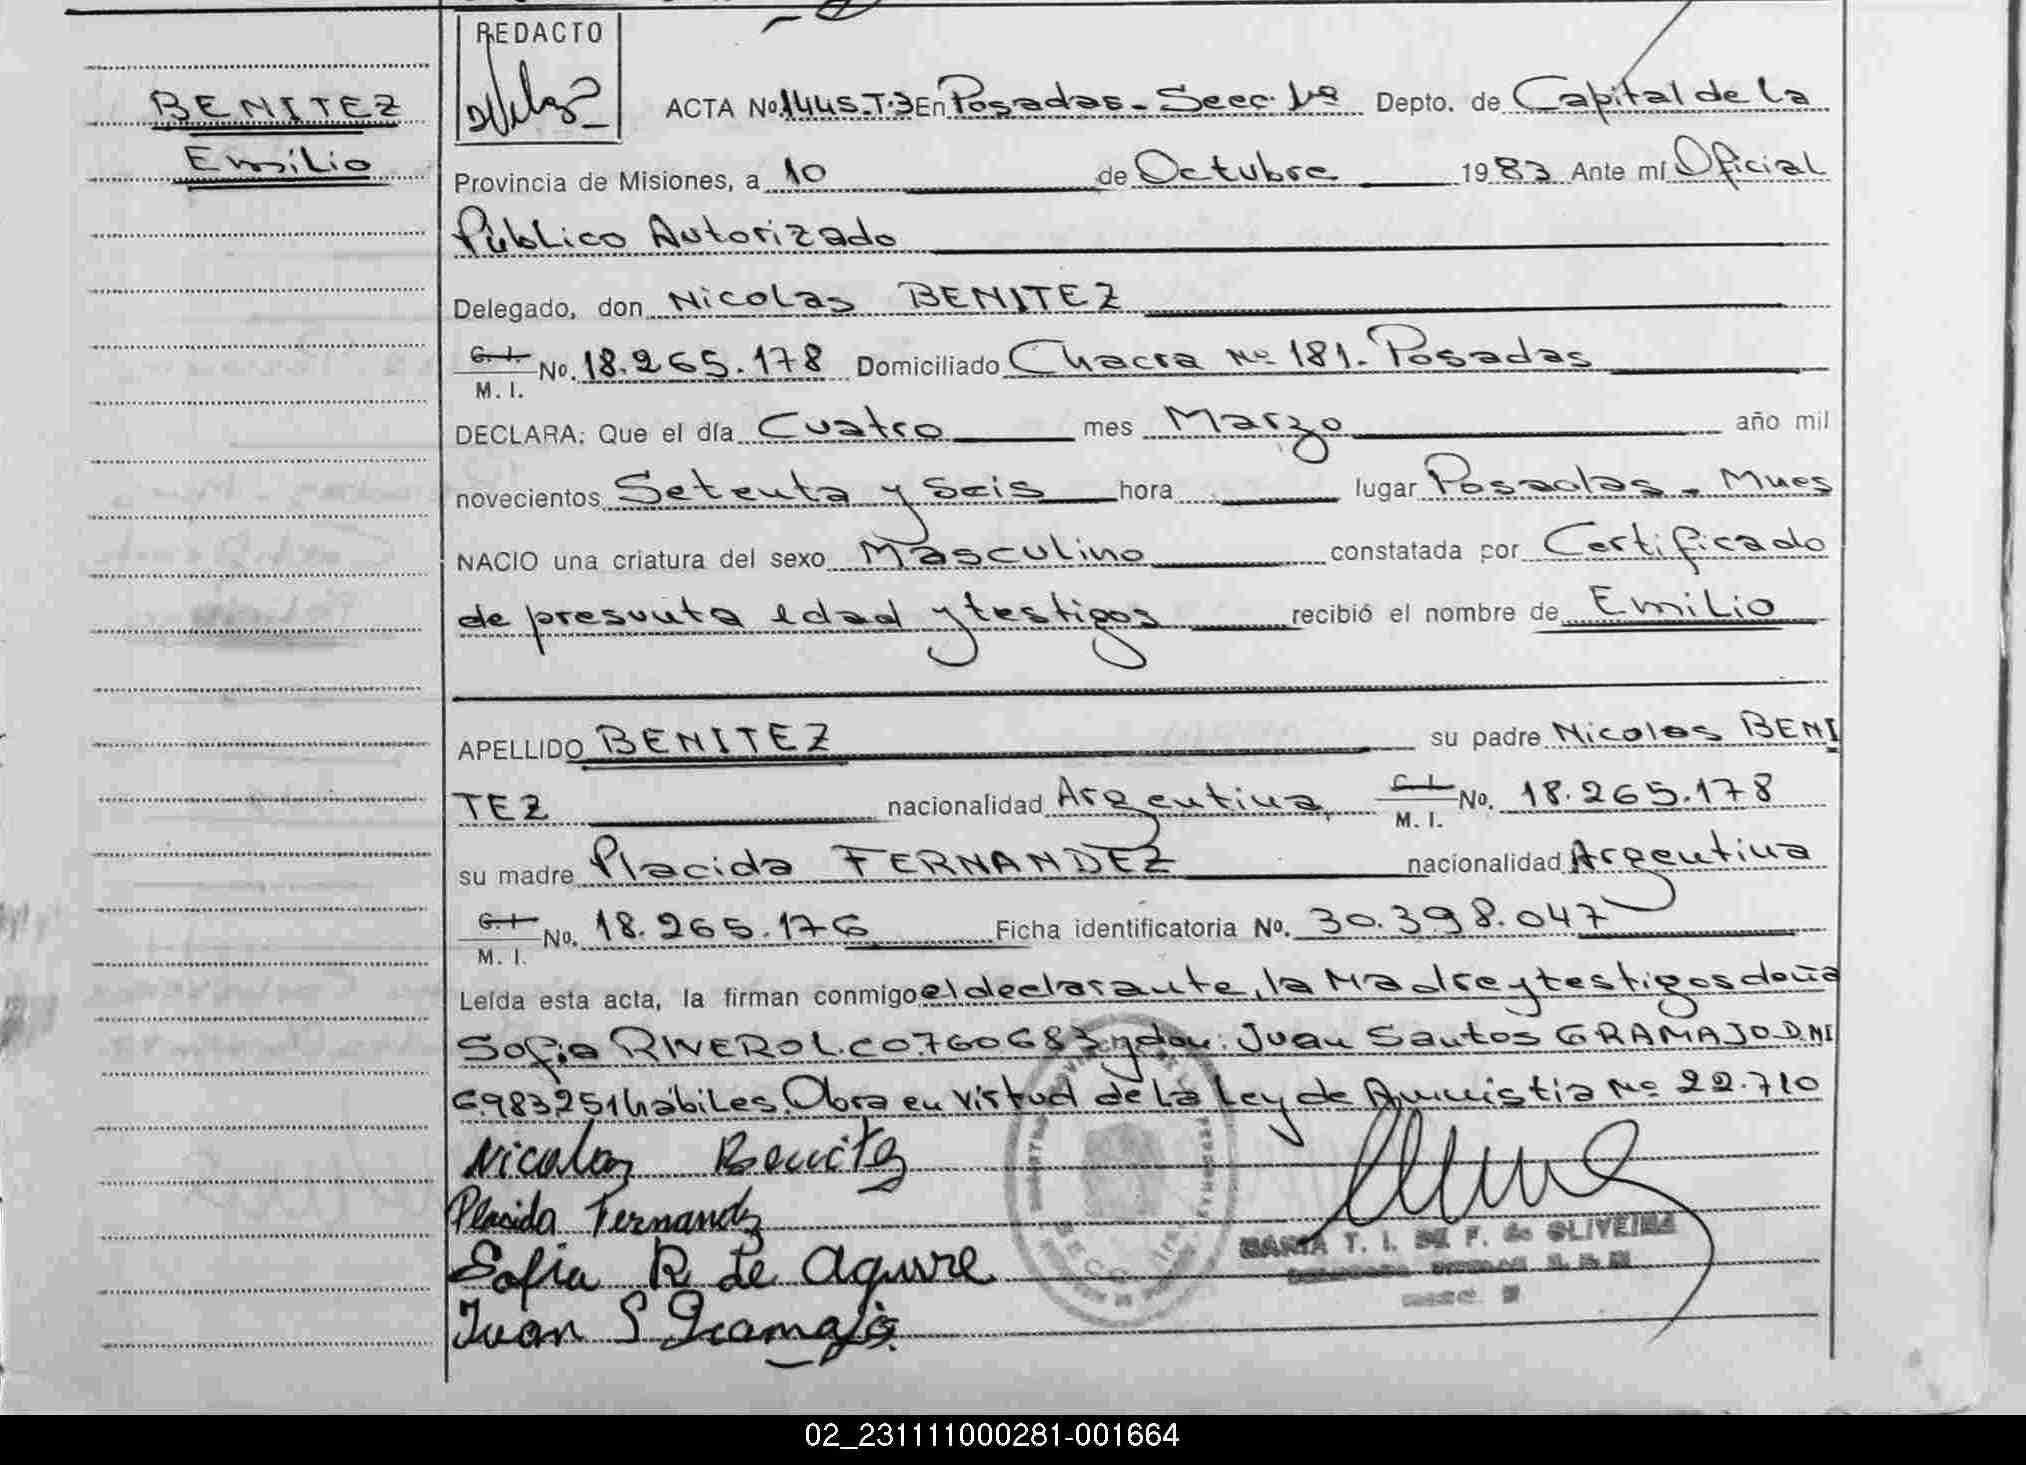 BENITEZ
Emilio
REDACTO
ACTA No. 1445-T-3 En Posadas - Secc. 1º Depto. de Capital de la
Provincia de Misiones, a 10 de Octubre 1983 Ante mí Oficial
Público Autorizado
Delegado, don Nicolas BENITEZ
C. I. M. I. No. 18.265.178 Domiciliado Chacra Nº 181. Posadas
DECLARA: Que el día Cuatro mes Marzo año mil
novecientos Setenta y Seis hora lugar Posadas - Mnes
NACIO una criatura del sexo Masculino constatada por Certificado
de presunta edad y testigos recibió el nombre de Emilio
APELLIDO BENITEZ su padre Nicolas BENI
TEZ nacionalidad Argentina, C. I. M. I. No. 18.265.178
su madre Placida FERNANDEZ nacionalidad Argentina
C. I. M. I. No. 18.265.176 Ficha identificatoria No. 30.398.047
Leída esta acta, la firman conmigo el declarante, la Madre y testigos doña
Sofia RIVERO L.C 0.760683 y don: Juan Santos GRAMAJO D.NI
6.983251 hábiles. Obra en virtud de la Ley de Amnistia Nº 22.710
Nicolas Benitez
Placida Fernandz
Sofia R de Aguirre
Juan S Gramajo
MARIA T. I. DE F. de OLIVEIRA
02_231111000281-001664